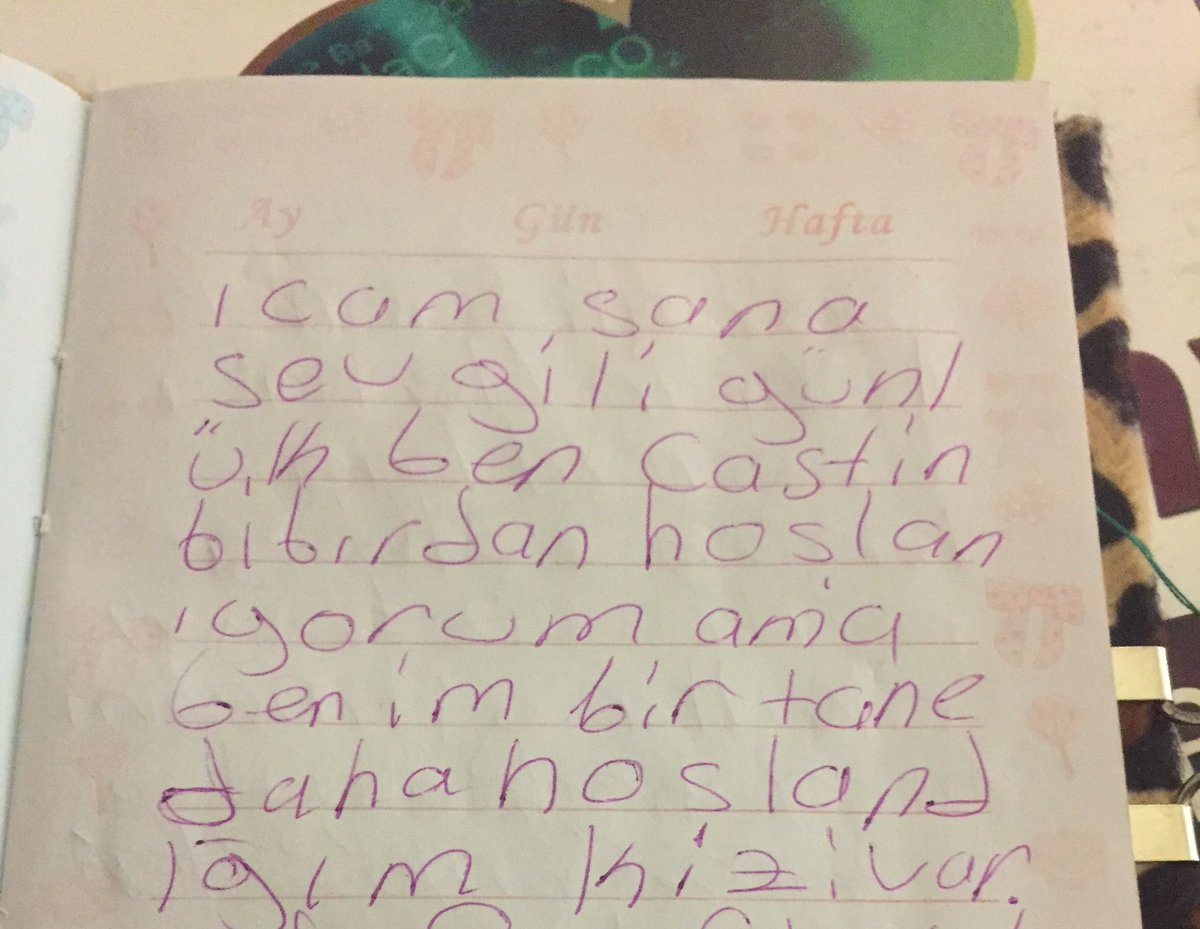 Ay Gün Hafta
ıcam sana
sevgili günl
ük ben Castin
bıbırdan hoslan
ıyorum ama
benim bir tane
daha hosland
ığım kizi var.